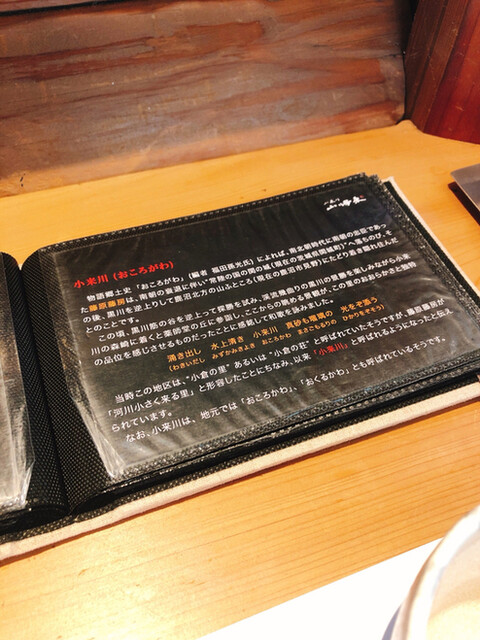 小来川(おころがわ)
物語郷土史「おころがわ」(編者 福田孫光氏)によれば、南北朝時代に南朝の忠臣であっ
た藤原藤房は、南朝の衰退に伴い"常陸の国の関の城(現在の茨城県関城町)"へ落ちのび、そ
の後、黒川を逆上りして鹿沼北方の山ふところ(現在の鹿沼市見野)にたどり着き隠れ住んだ
とのことです。
この頃、黒川郷の谷を逆上って探勝を試み、渓流織曲りの黒川の景勝を楽しみながら小来
川の森崎に着くと薬師堂の丘に参詣し、ここからの眺める景観が、この里のおおらかさと独特
の品位を感じさせるものだったことに感動して和歌を詠みました。
涌き出し 水上清き 小来川 真砂も瑠璃の 光をぞ添う
(わきいだし みずかみきよき おころがわ まさごもるりの ひかりをぞそう)
当時この地区は、"小倉の里"あるいは"小倉の荘"と呼ばれていたそうですが、藤原藤房が
「河川小さく来る里」と形容したことにちなみ、以来「小来川」と呼ばれるようになったと伝え
られています。
なお、小来川は、地元では「おころかわ」、「おくるかわ」とも呼ばれているそうです。